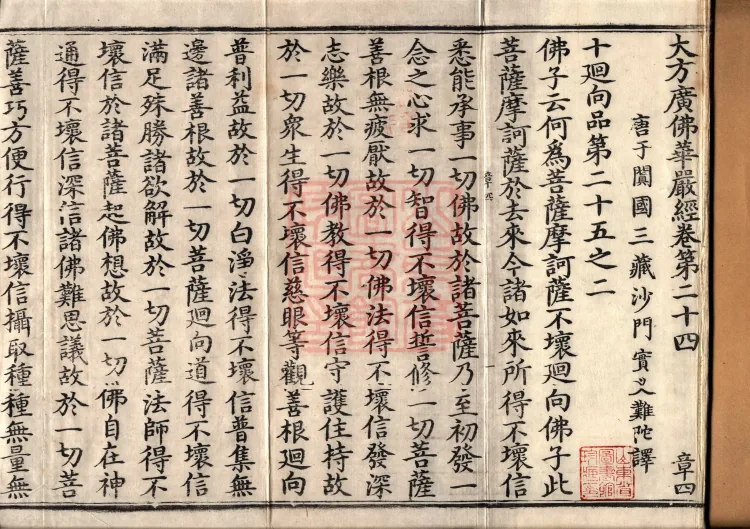 大方廣佛華嚴經卷第二十四 章四
唐于闐國三藏沙門實叉難陀譯
十廻向品第二十五之二
佛子云何為菩薩摩訶薩不壞廻向佛子此
菩薩摩訶薩於去來今諸如來所得不壞信
章四
悉能承事一切佛故於諸菩薩乃至初發一
念之心求一切智得不壞信誓修一切菩薩
善根無疲厭故於一切佛法得不壞信發深
志樂故於一切佛教得不壞信守護住持故
於一切眾生得不壞信慈眼等觀善根廻向
普利益故於一切白淨法得不壞信普集無
邊諸善根故於一切菩薩廻向道得不壞信
滿足殊勝諸欲解故於一切菩薩法師得不
壞信於諸菩薩起佛想故於一切佛自在神
通得不壞信深信諸佛難思議故於一切菩
薩善巧方便行得不壞信攝取種種無量無